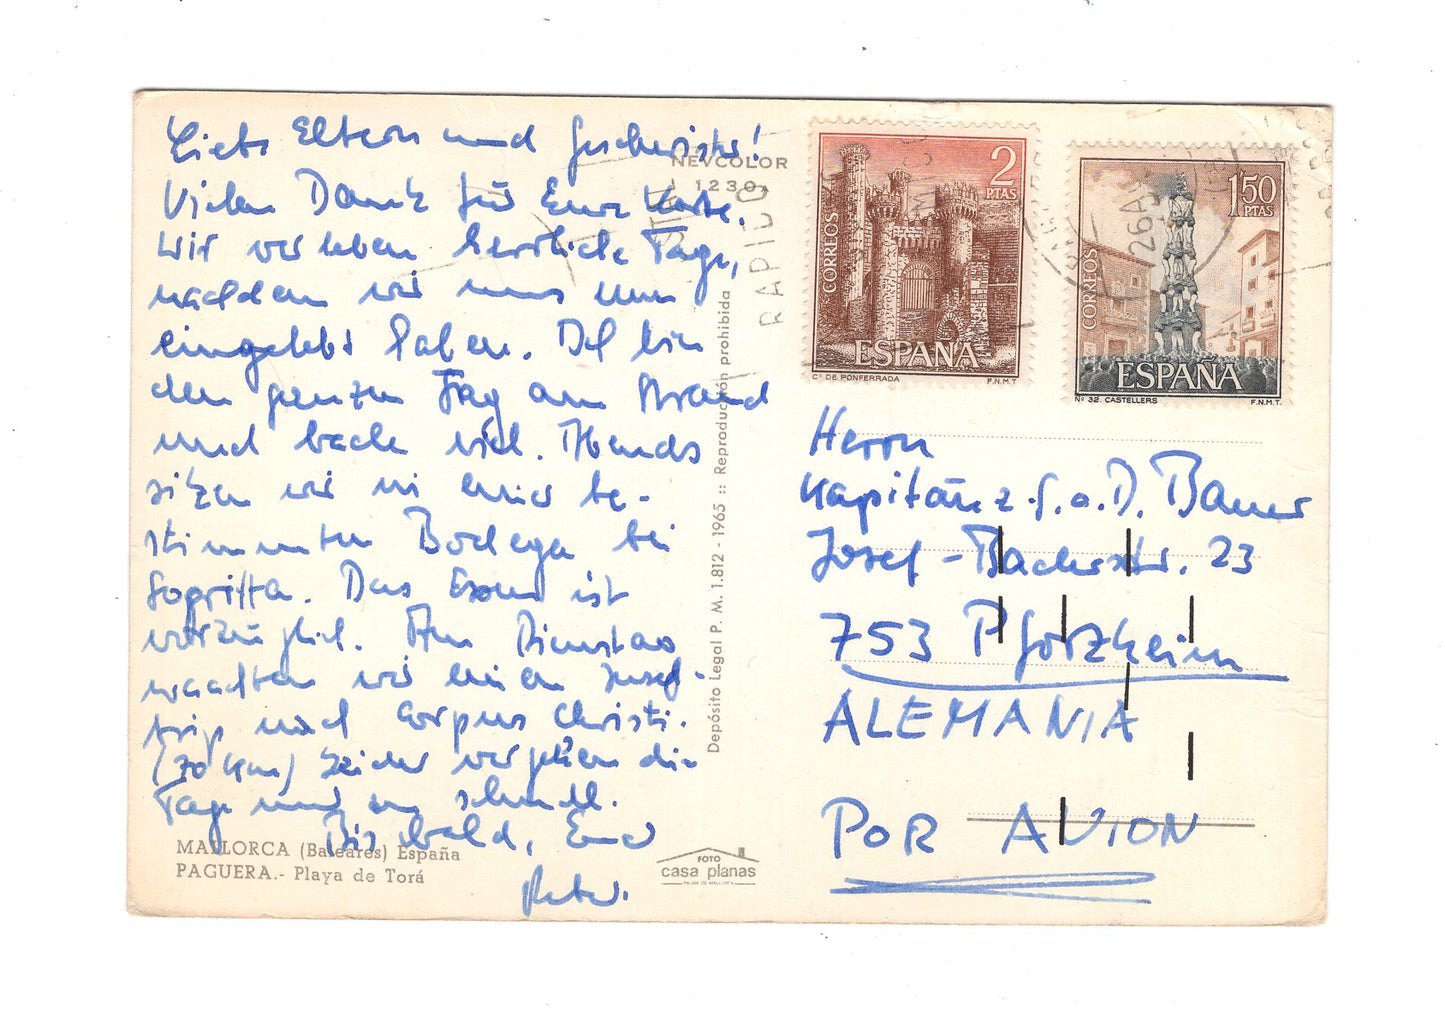 Liebe Eltern und Geschwister!
Vielen Dank für Eure Karte.
Wir verleben herrliche Tage,
nachdem wir uns nun
eingelebt haben. Ich bin
den ganzen Tag am Strand
und bade viel. Abends
sitzen wir in einer be-
stimmten Bodega bei
Sogritta. Das Essen ist
vorzüglich. Am Dienstag
machten wir einen Insel-
trip nach Corpus Christi.
(70 Km) Leider vergehen die
Tage nur zu schnell.
Bis bald, Euer
Peter.
MALLORCA (Baleares) España
PAGUERA.- Playa de Torá
NEVCOLOR
1230
RAPIDO
Depósito Legal P. M. 1.812 - 1965 :: Reproducción prohibida
FOTO
casa planas
PALMA DE MALLORCA
2
PTAS
CORREOS
ESPAÑA
Cº DE PONFERRADA
F.N.M.T
1'50
PTAS
CORREOS
ESPAÑA
Nº 32. CASTELLERS
F.N.M.T.
26 A
Herrn
Kapitän z.S.a.D. Bauer
Josef-Baderstr. 23
753 Pforzheim
ALEMANIA
POR AVION